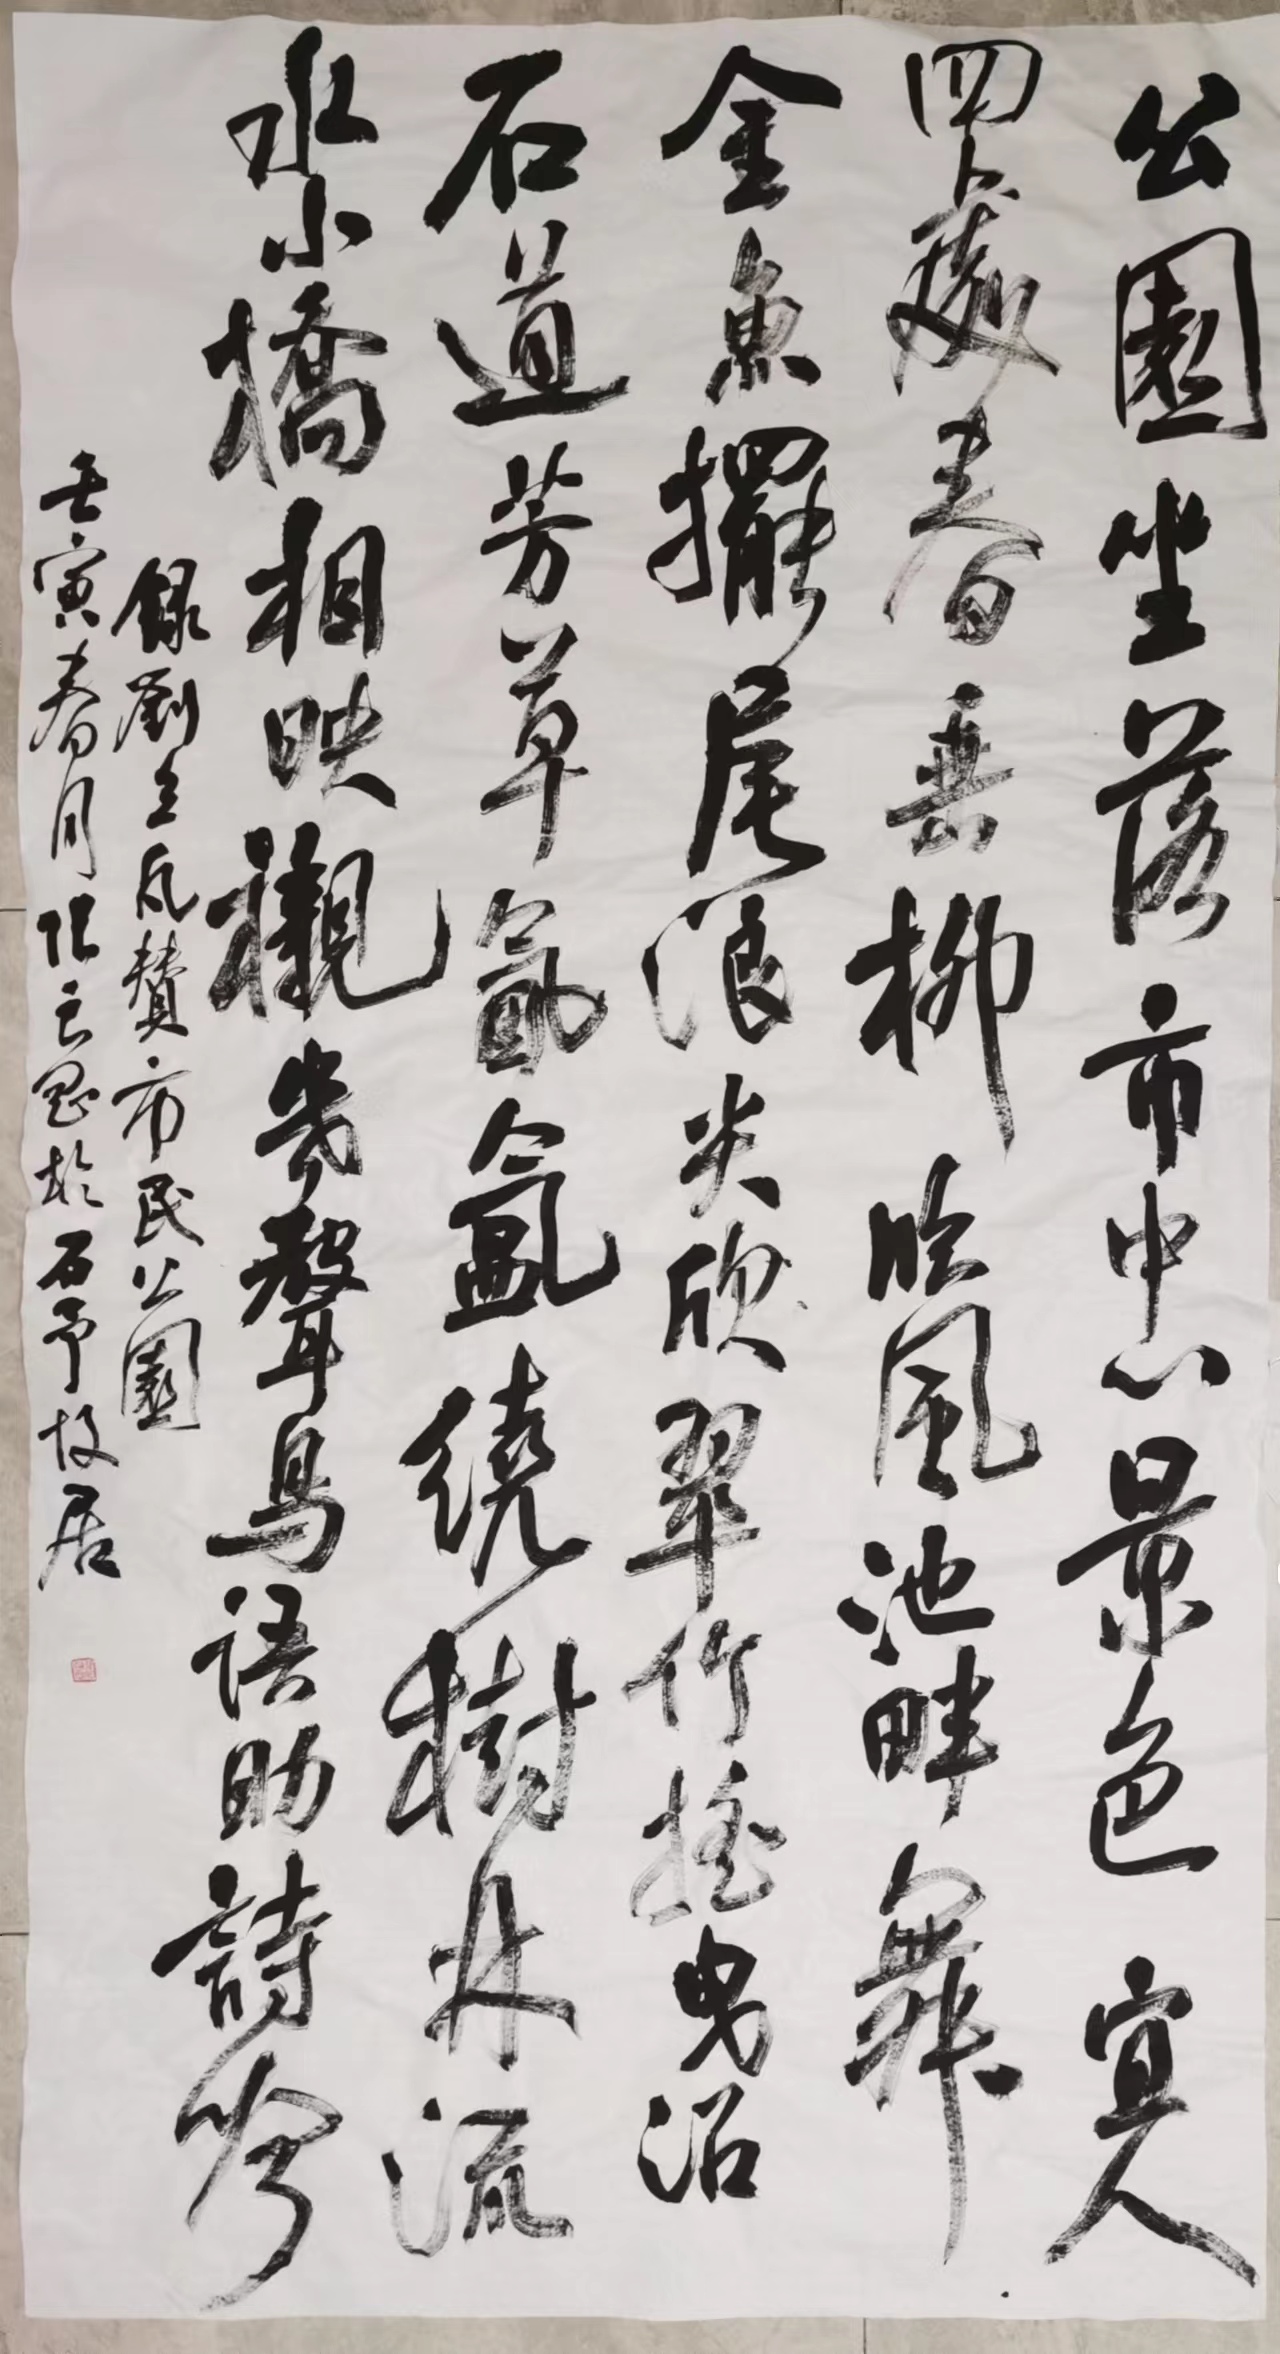 公園坐落市中心景色宜人
四處春垂柳臨風池畔舞
金魚擺尾浪尖欣翠竹搖曳沿
石道芳草氤氳繞樹林流
水小橋相映襯幾聲鳥語助詩吟
錄劉立凡贊市民公園
壬寅春月張志罡於石予故居